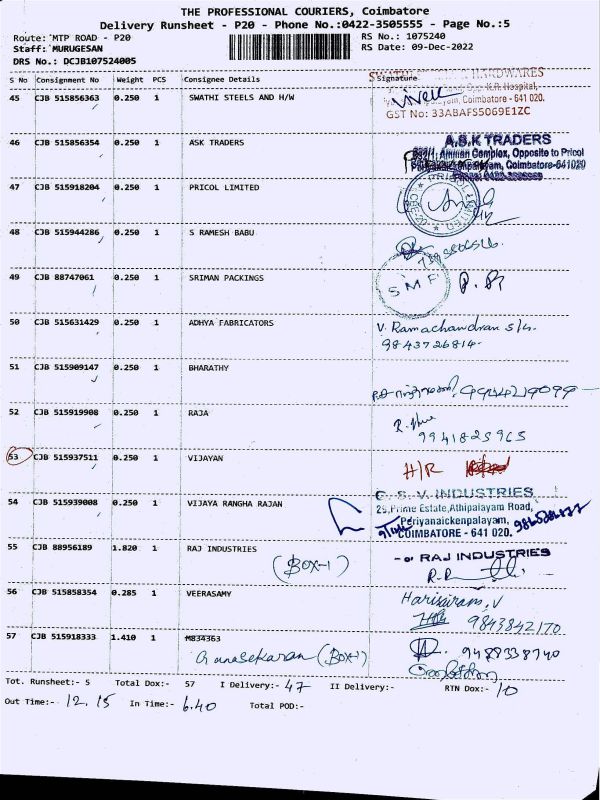 THE PROFESSIONAL COURIERS, Coimbatore
Delivery Runsheet - P20 - Phone No.:0422-3505555 - Page No.:5
Route: MTP ROAD - P20
RS No.: 1075240
Staff: MURUGESAN
RS Date: 09-Dec-2022
DRS No.: DCJB107524005
S No Consignment No Weight PCS Consignee Details Signature
45 CJB 515856363 0.250 1 SWATHI STEELS AND H/W
HARDWARES
Hospital,
Coimbatore - 641 020.
GST No: 33ABAFS5069E1ZC
46 CJB 515856354 0.250 1 ASK TRADERS
A.S.K TRADERS
Amman Complex, Opposite to Pricol
Coimbatore-641020
47 CJB 515918204 0.250 1 PRICOL LIMITED
48 CJB 515944286 0.250 1 S RAMESH BABU
49 CJB 88747061 0.250 1 SRIMAN PACKINGS
SMF
50 CJB 515631429 0.250 1 ADHYA FABRICATORS
V. Ramachandran S/o.
9843726814.
51 CJB 515909147 0.250 1 BHARATHY
52 CJB 515919908 0.250 1 RAJA
9941825965
53 CJB 515937511 0.250 1 VIJAYAN
H/R
54 CJB 515939008 0.250 1 VIJAYA RANGHA RAJAN
G. S. V. INDUSTRIES
25, Prime Estate, Athipalayam Road,
Periyanaickenpalayam,
COIMBATORE - 641 020.
55 CJB 88956189 1.820 1 RAJ INDUSTRIES
(BOX-1)
RAJ INDUSTRIES
56 CJB 515858354 0.285 1 VEERASAMY
Harisairam, V
9843842170
57 CJB 515918333 1.410 1 M834363
Gunasekaran (Box-1)
9488338740
Tot. Runsheet:- 5 Total Dox:- 57 I Delivery:- 47 II Delivery:- RTN Dox:- 10
Out Time:- 12.15 In Time:- 6.40 Total POD:-